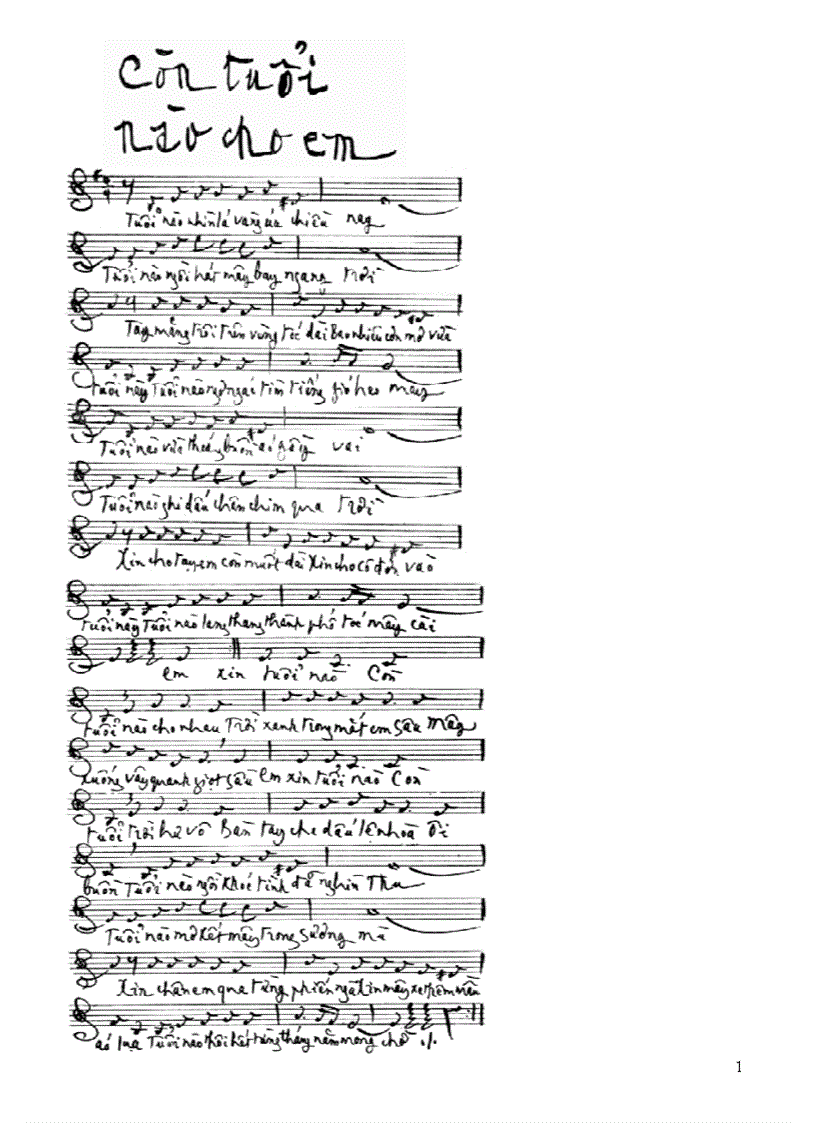 Còn tuổi
nào cho em
Tuổi nào nhìn lá vàng úa chiều nay
Tuổi nào ngồi hát mây bay ngang trời
Tay măng trôi trên vùng tóc dài Bao nhiêu cơn mơ vừa
tuổi này Tuổi nào ngơ ngác tìm tiếng gió heo may
Tuổi nào vừa thoáng buồn áo gầy vai
Tuổi nào ghi dấu chân chim qua trời
Xin cho tay em còn muốt dài Xin cho cô đơn vào
tuổi này Tuổi nào lang thang thành phố tóc mây cài
em xin tuổi nào Còn
tuổi nào cho nhau Trời xanh trong mắt em sâu Mây
xuống vây quanh giọt sầu Em xin tuổi nào Còn
tuổi trời hư vô Bàn tay che dấu lệ nhoà Ôi
buồn Tuổi nào ngồi khóc tình đã nghìn Thu
Tuổi nào mơ kết mây trong sương mù
Xin chân em qua từng phiến ngà Xin mây xe thêm màu
áo lụa Tuổi nào thôi hết từng tháng năm mong chờ ./.
1